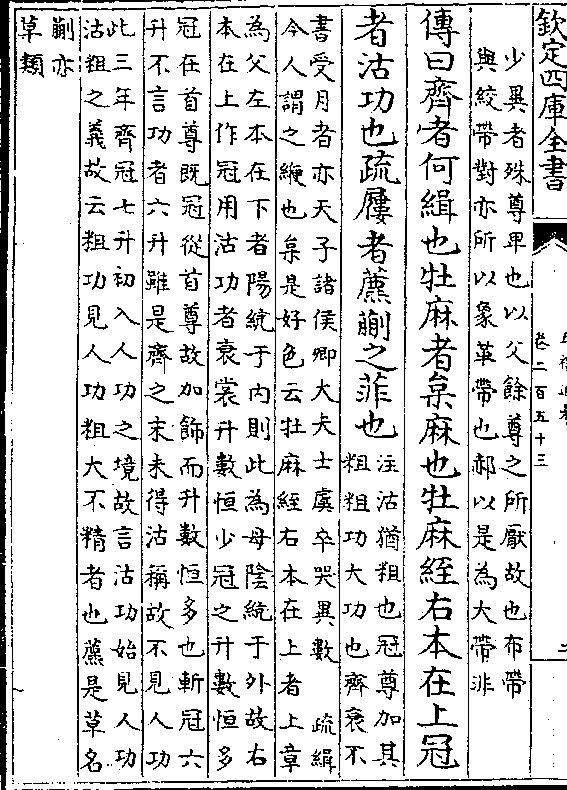 欽定四庫全書
卷二百五十三
少異者殊尊卑也以父餘尊之所厭故也布帶
與絞帶對亦所以象革帶也郝以是為大帶非
傳曰齊者何緝也牡麻者枲麻也牡麻絰右本在上冠
者沽功也疏屨者藨蒯之菲也
注沽猶粗也冠尊加其
粗粗功大功也齊衰不
書受月者亦天子諸侯卿大夫士虞卒哭異數 疏緝
今人謂之緶也枲是好色云牡麻絰右本在上者上章
為父左本在下者陽統于内則此為母陰統于外故右
本在上作冠用沽功者衰裳升數恒少冠之升數恒多
冠在首尊既冠從首尊故加飾而升數恒多也斬冠六
升不言功者六升雖是齊之末未得沽稱故不見人功
此三年齊冠七升初入人功之境故言沽功始見人功
沽粗之義故云粗功見人功粗大不精者也藨是草名
蒯亦
草類